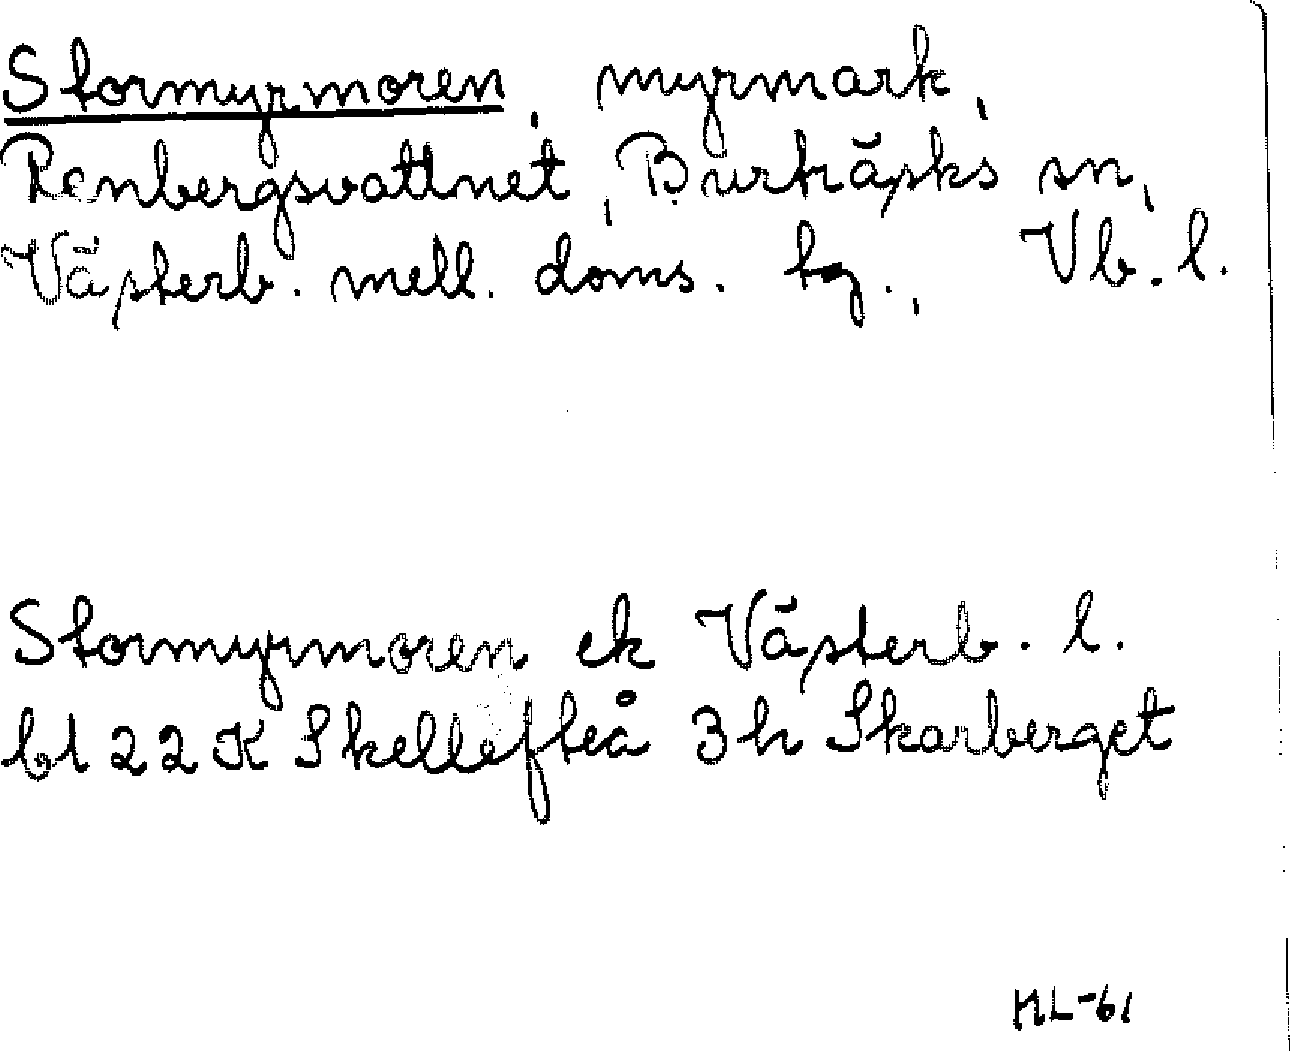 Stormyrmoren, myrmark,
Renbergsvattnet, Burträsks sn,
Västerb. mell. doms. tg., Vb. l.
Stormyrmoren ek Västerb. l.
bl 22 K Skellefteå 3h Skarberget
ML-61